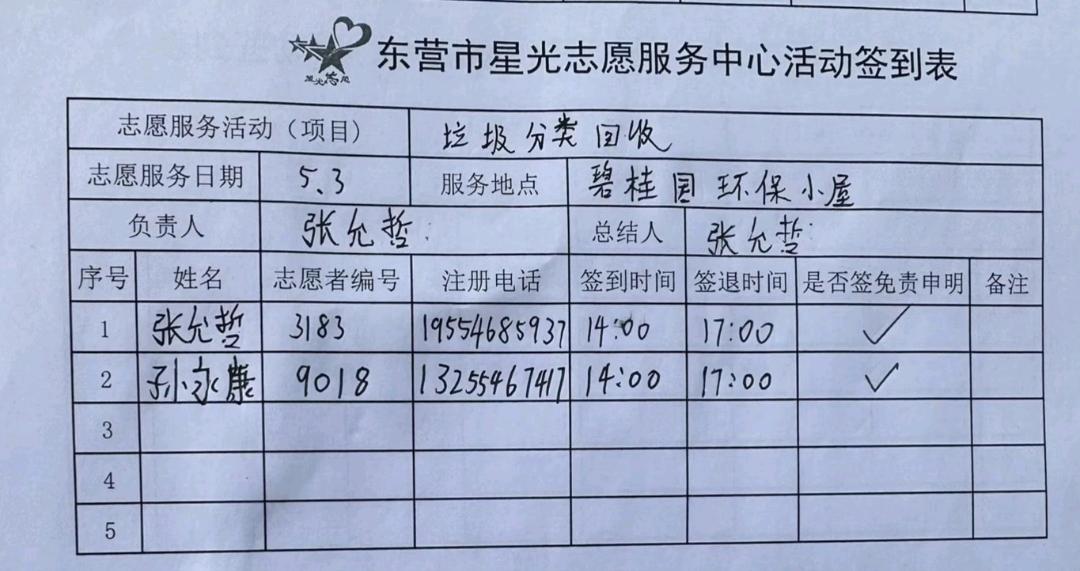 东营市星光志愿服务中心活动签到表
志愿服务活动（项目） 垃圾分类回收
志愿服务日期 5.3 服务地点 碧桂园环保小屋
负责人 张允哲 总结人 张允哲
序号 姓名 志愿者编号 注册电话 签到时间 签退时间 是否签免责申明 备注
1 张允哲 3183 19554685937 14:00 17:00 ✓
2 孙永康 9018 13255467417 14:00 17:00 ✓
3
4
5